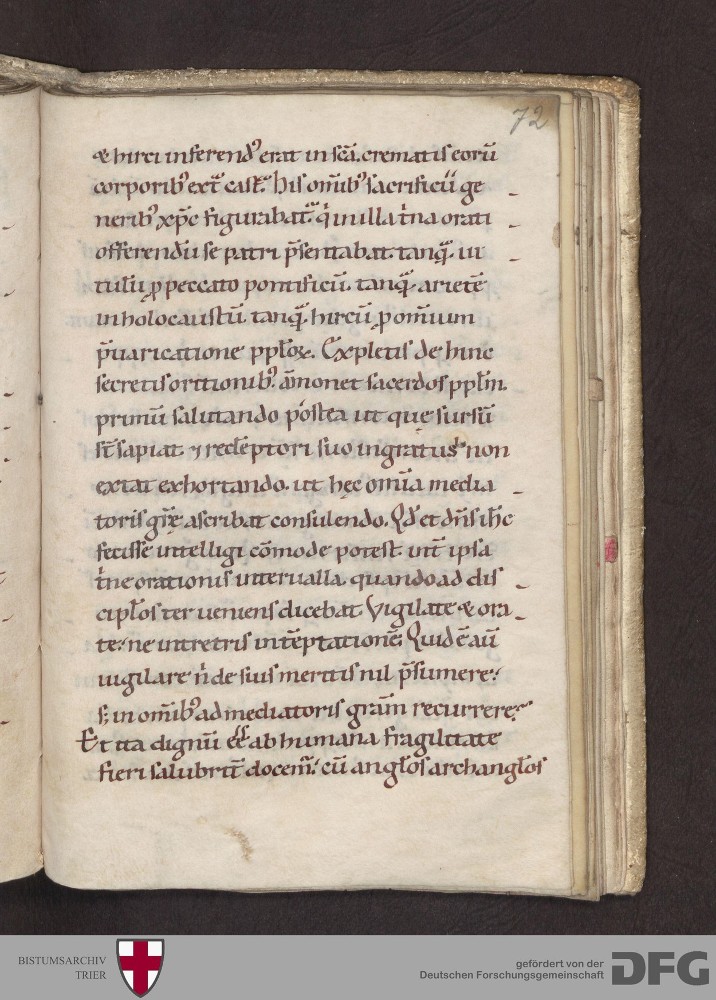 72
& hirci inferend᾽ erat in sc̄ā. crematis eorū
corporib᾽ ext̄ͣ cast̄ͣ. His om̄ib᾽ sacrificiū ge
nerib᾽ xp̄c figurabat͛. qͥ in illa tͥna orati
offerendū se patri p̄sentabat. tanqͣ̄. ui
tulū ꝓ peccato pontificū. tanqͣ̄. arietē
in holocaustū. tanqͣ̄. hircū ꝓ omnium
p̄uaricatione pplo̅ꝝ. Expletis de hinc
secretis or̄tionib᾽. āmonet sacerdos ppl̄m.
primū salutando postea ut que sursū
st̄ sapiat. ⁊ redēptori suo ingratus non
extat exhortando. ut hęc om̄ia media
toris gr̄ę ascribat consulendo. Qd̄ et dn̄s ih̄c
fecisse intelligi cōmode potest. int̄ ipsa
tͥne orationis interualla. quando ad dis
cipl̄os ter ueniens dicebat. Vigilate & ora
te. ne intretis in tēptationē; Quid ē aū
uigilare nͥ de suis meritis nil p̄sumere.
s; in om̄ib᾽ ad mediatoris gr̄am recurrere?
Et ita dignū ee̅ ab humana fragilitate
fieri salubrit̄ docem͛. cū angl̄os archangl̄os
BISTUMSARCHIV
TRIER
gefördert von der
Deutschen Forschungsgemeinschaft
DFG